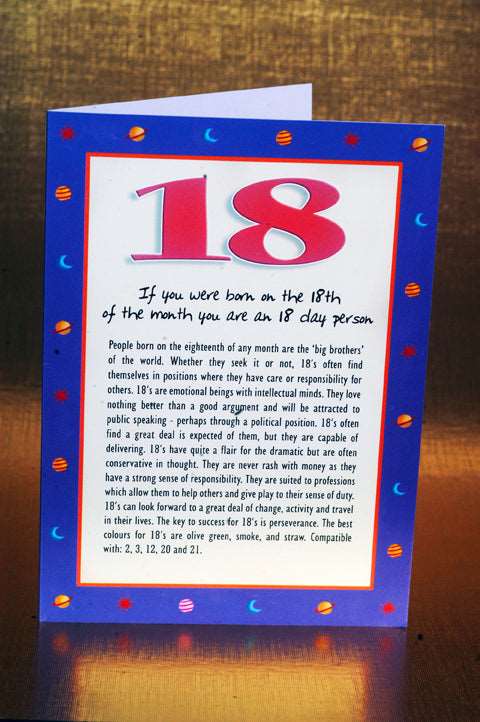 18
If you were born on the 18th
of the month you are an 18 day person
People born on the eighteenth of any month are the 'big brothers'
of the world. Whether they seek it or not, 18's often find
themselves in positions where they have care or responsibility for
others. 18's are emotional beings with intellectual minds. They love
nothing better than a good argument and will be attracted to
public speaking - perhaps through a political position. 18's often
find a great deal is expected of them, but they are capable of
delivering. 18's have quite a flair for the dramatic but are often
conservative in thought. They are never rash with money as they
have a strong sense of responsibility. They are suited to professions
which allow them to help others and give play to their sense of duty.
18's can look forward to a great deal of change, activity and travel
in their lives. The key to success for 18's is perseverance. The best
colours for 18's are olive green, smoke, and straw. Compatible
with: 2, 3, 12, 20 and 21.